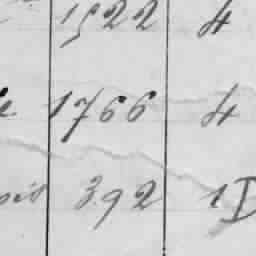 1522 4
1766 4
392 1D